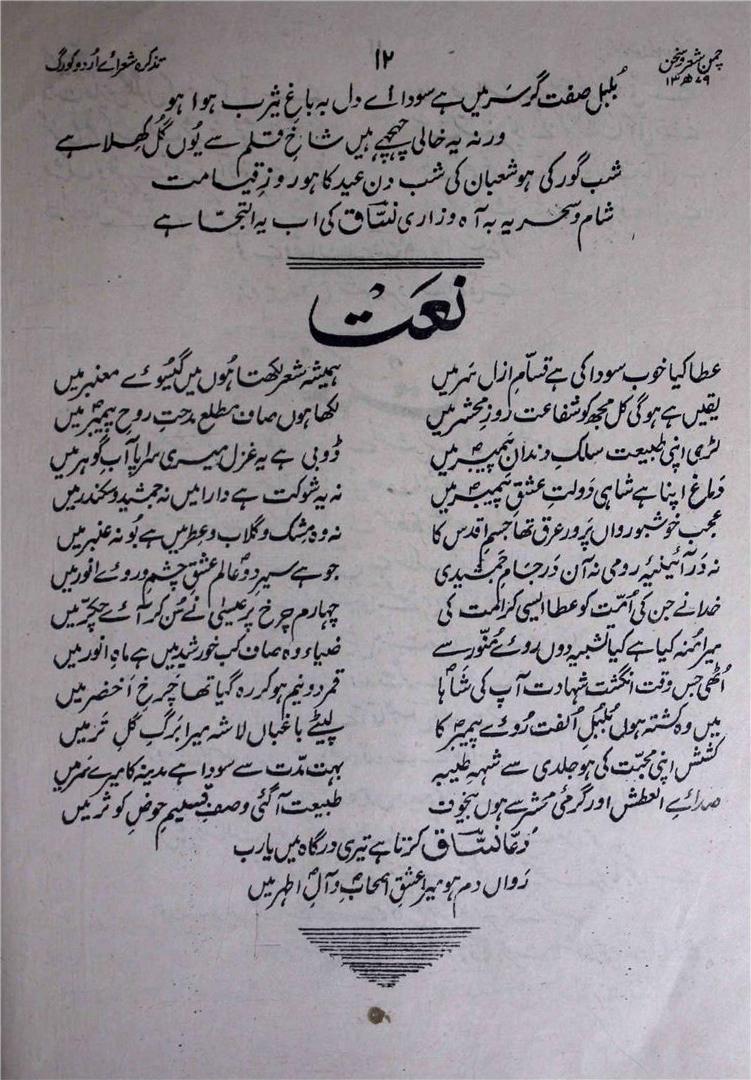 چمنِ شعر و سخن ۱۲ تذکرہ شعرائے اُردو کورگ
۱۳۷۹ھ
بُلبل صفت گر سَر میں ہے سودا اے دل بہ باغِ یثرب ہوا ہو
ورنہ یہ خالی چہچہے ہیں شاخِ قلم سے یُوں گُل کھلا ہے
شب گور کی ہو شعبان کی شب دن عید کا ہو روزِ قیامت
شام و سحر یہ بہ آہ وزاری نسّاق کی اب یہ التجا ہے
نعت
عطا کیا خوب سودا کی ہے قسّامِ ازل سَر میں ہمیشہ شعر لکھتا ہُوں میں گیسُوئے معنبر میں
یقیں ہے ہوگی کل مجھ کو شفاعت روزِ محشر میں لکھا ہوں صاف مطلع مدحتِ روحِ پیمبرؐ میں
لڑی اپنی طبیعت سلکِ دندانِ پیمبرؐ میں ڈوبی ہے یہ غزل میری سراپا آبِ گوہر میں
دَماغ اپنا ہے شاہی دَولتِ عشقِ پیمبرؐ میں نہ یہ شوکت ہے دارا میں نہ جمشید و سکندر میں
عجب خوشبو رواں پَرور عرق تھا جسمِ اقدس کا نہ وہ مشک و گلاب و عطر میں ہے بُو نہ عنبر میں
نہ دَر آئینۂ رومی نہ آن دَر جامِ جمشیدی جو ہے سیرِ دو عالم عشقِ چشم و روئے انور میں
خدا نے جن کی اُمّت کو عطا ایسی کرامت کی چہارم چرخ پر عیسیٰؑ نے سُن کر آئے چکّر میں
میرا مُنہ کیا ہے کیا تشبیہ دوں روئے مُنّور سے ضیاء وہ صاف کب خورشید میں ہے ماہِ انور میں
اُٹھی جس وقت انگشتِ شہادت آپ کی شاہاؐ قمر دونیم ہو کر رہ گیا تھا چَرخِ اَخضر میں
میں وہ کشتہ ہوں بُلبل اُلفتِ رُوئے پیمبرؐ کا لپیٹے باغباں لاشہ میرا بَرگِ گلِ تَر میں
کشش اپنی محبّت کی ہو جلدی سے شہہِ طیبہ بہت مدّت سے سودا ہے مدینہ کا میرے سَر میں
صدائے العطش اور گرمیٔ محشر سے ہوں بیخوف طبیعت آگئی وصفِ قسیمِ حوضِ کوثر میں
دُعا نسّاق کرتا ہے تیری درگاہ میں یارب
رَواں دم ہو میرا عشقِ اصحابؓ و آلِؓ اطہر میں